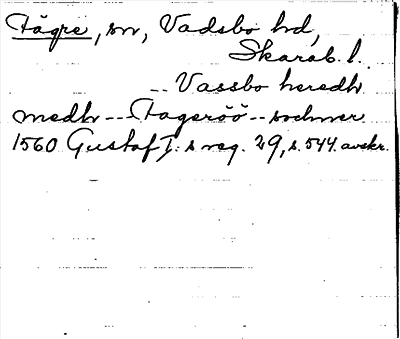 Fägre, sn, Vadsbo hd,
Skarab. l.
-- Vassbo heredh
medh -- Fageröö -- sochner
1560 Gustaf I:s reg. 29, s. 544. avskr.